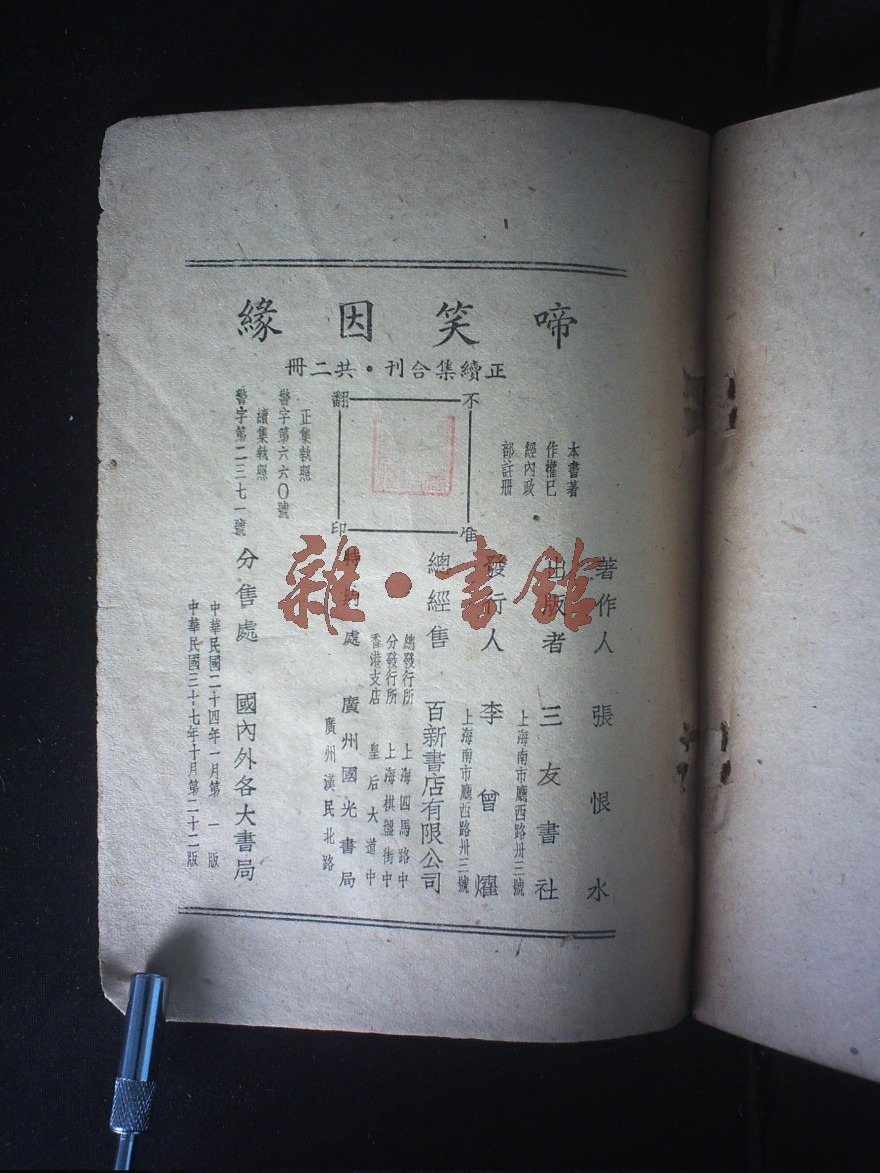 啼笑因緣
正續集合刊・共二冊
不准翻印
本書著
作權已
經內政
部註冊
正集執照
警字第六六〇號
續集執照
警字第二三七一號
著作人 張恨水
出版者 三友書社
上海南市廳西路卅三號
發行人 李曾燿
上海南市廳西路卅三號
總經售 百新書店有限公司
總發行所 上海四馬路中
分發行所 上海棋盤街中
香港支店 皇后大道中
特約處 廣州國光書局
廣州漢民北路
分售處 國內外各大書局
中華民國二十四年一月第一版
中華民國三十七年十月第二十二版
雜・書館